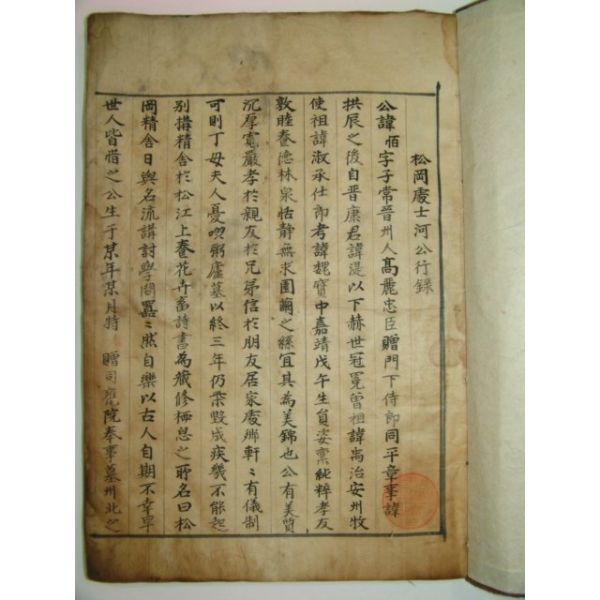 松岡處士河公行錄
公諱恒字子常晉州人高麗忠臣贈門下侍郎同平章事諱
拱辰之後自晋康君諱湜以下赫世冠冕曾祖諱禹治安州牧
使祖諱淑承仕郎考諱魏寶中嘉靖戊午生員姿稟純粹孝友
敦睦養德林泉恬靜無求園繭之絲宜其為美錦也公有美質
沉厚寬嚴孝於親友於兄弟信於朋友居家處鄕軒々有儀制
可則丁母夫人憂啜粥廬墓以終三年仍柴毁成疾幾不能起
別搆精舍於松江上養花卉畜詩書為藏修栖息之所名曰松
岡精舍日與名流講討學問囂々然自樂以古人自期不幸早
世人皆惜之公生于某年某月特 贈司䆃院奉事墓州北之